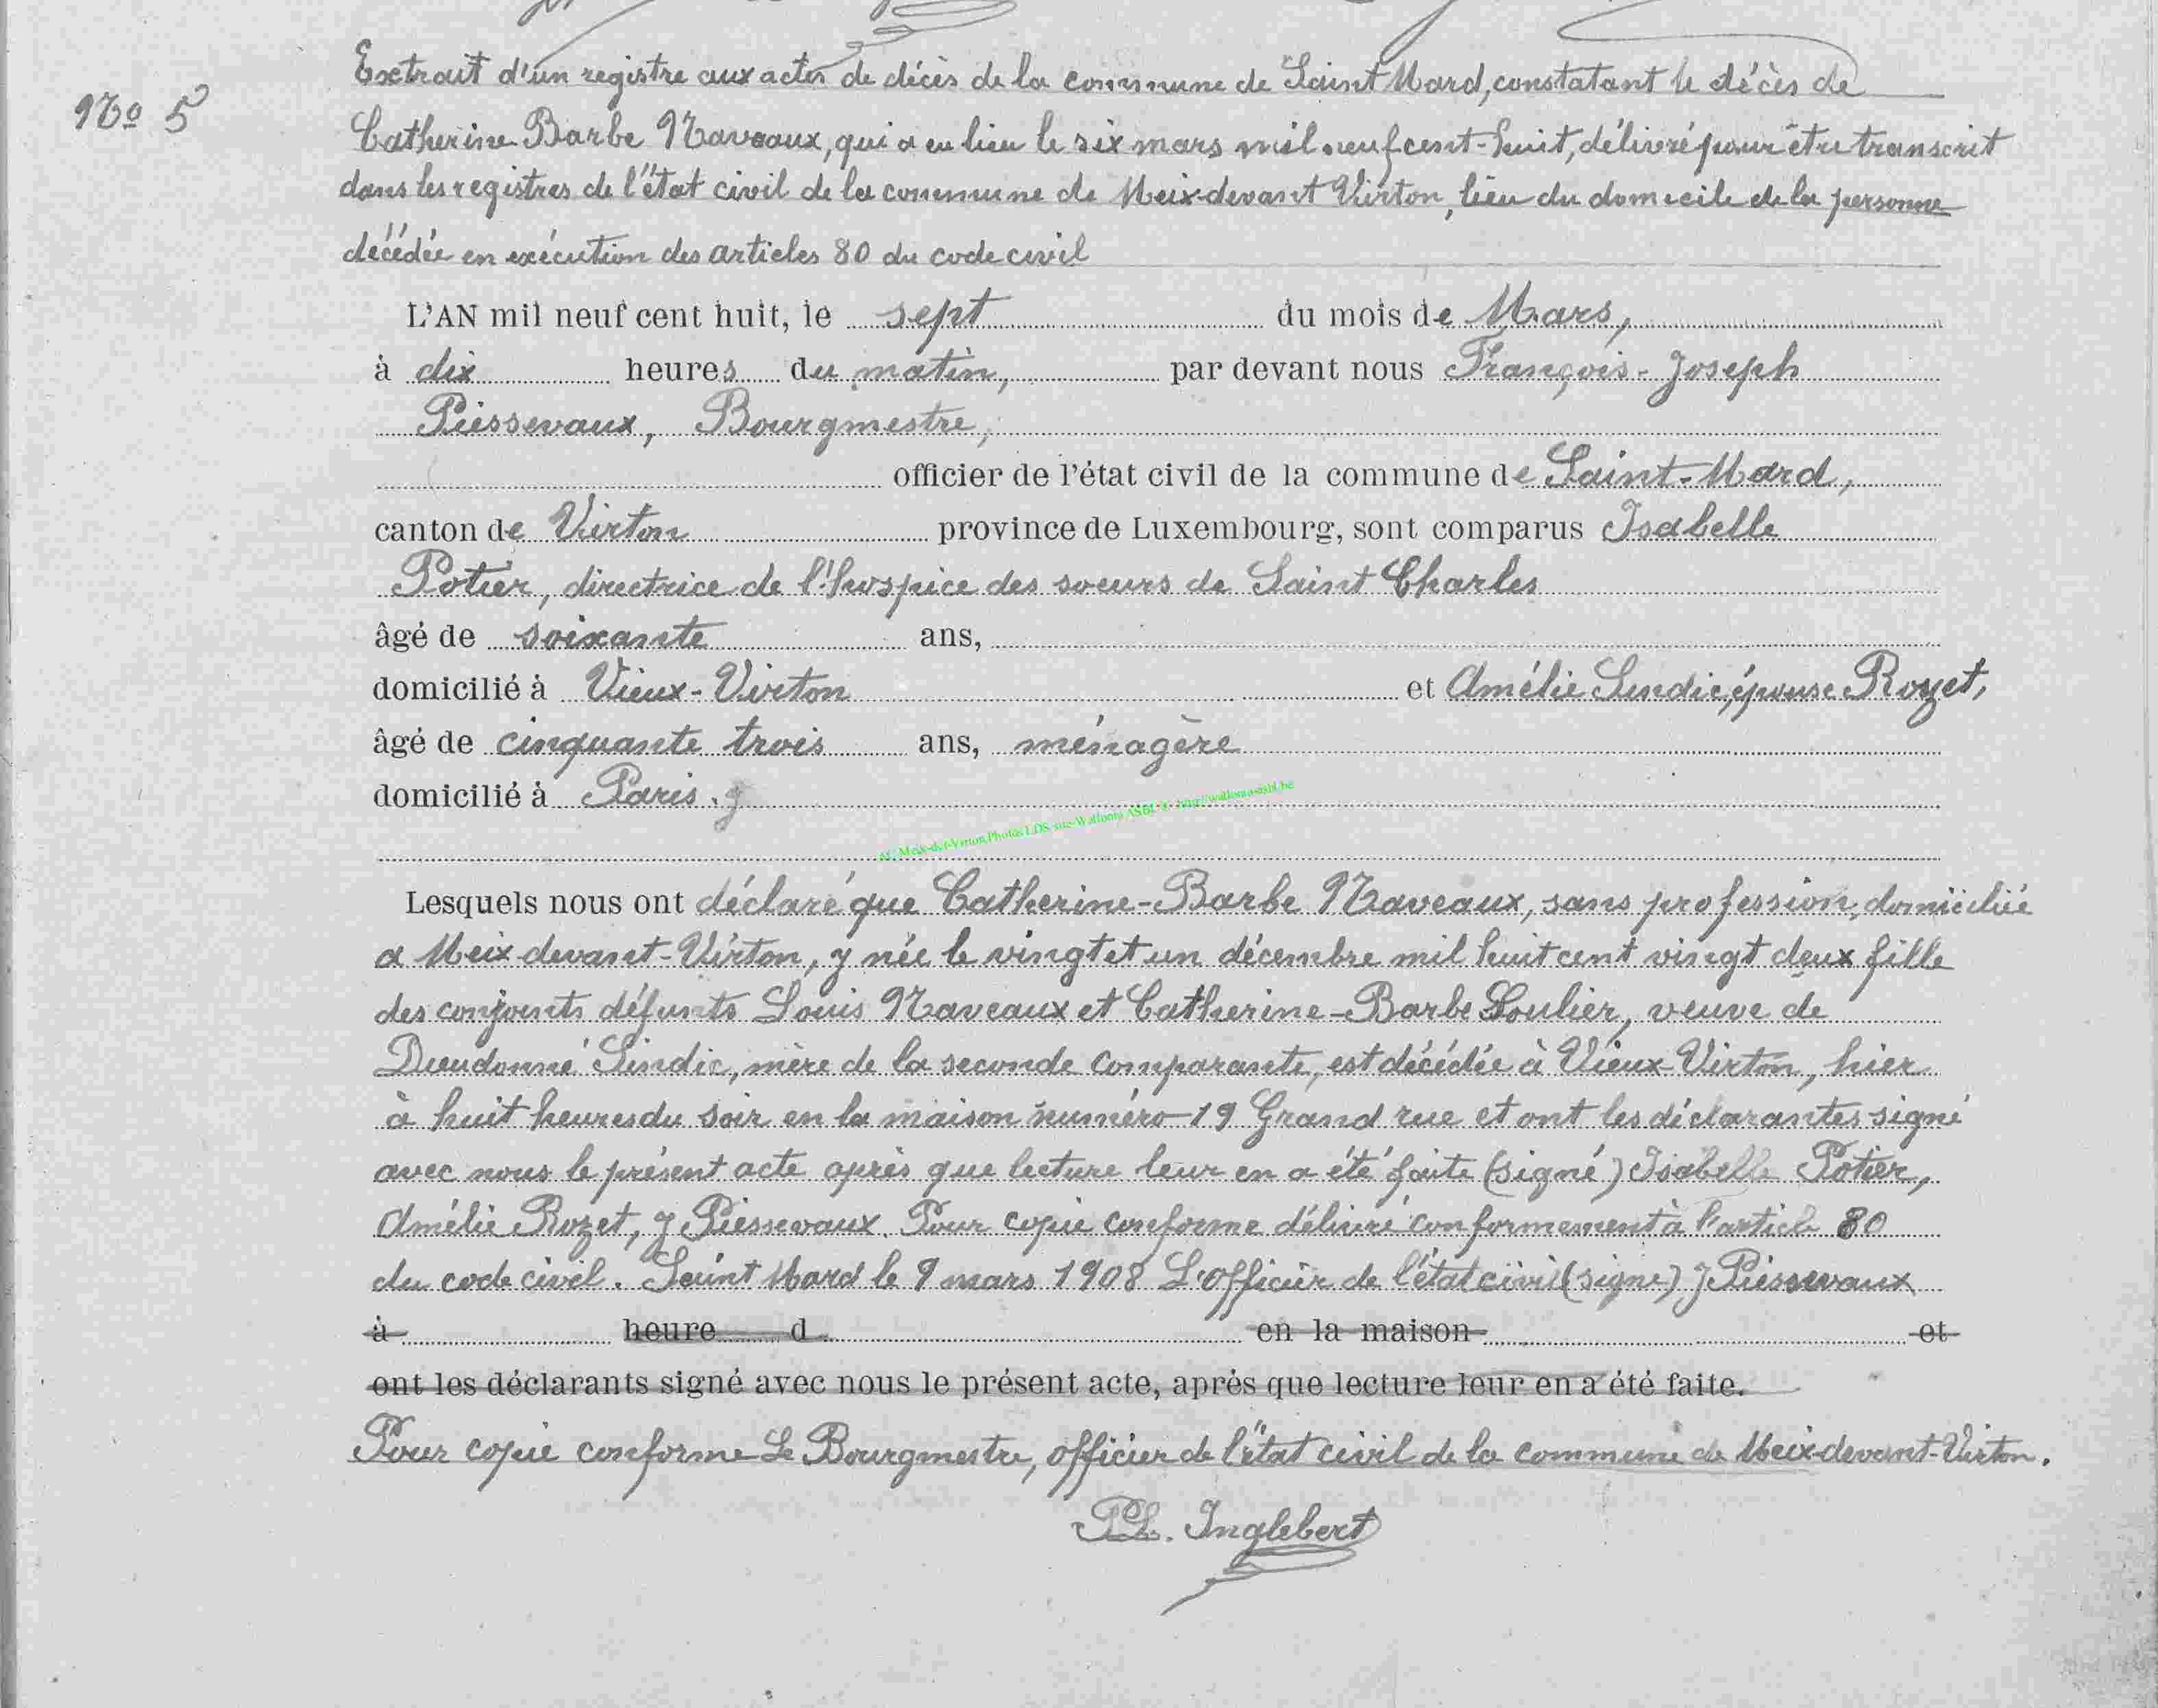 Extrait d'un registre aux actes de décès de la commune de Saint Mard, constatant le décès de
No 5
Catherine Barbe Naveaux, qui a eu lieu le six mars mil neuf cent-huit, délivré pour être transcrit
dans les registres de l'état civil de la commune de Meix-devant Virton, lieu du domicile de la personne
décédée en exécution des articles 80 du code civil
L'AN mil neuf cent huit, le sept du mois de Mars,
à dix heures du matin, par devant nous François-Joseph
Piessevaux, Bourgmestre,
officier de l'état civil de la commune de Saint-Mard,
canton de Virton province de Luxembourg, sont comparus Isabelle
Potier, directrice de l'hospice des soeurs de Saint Charles
âgé de soixante ans,
domicilié à Vieux-Virton et Amélie Sindic, épouse Rozet,
âgé de cinquante trois ans, ménagère
domicilié à Paris.
Lesquels nous ont déclaré que Catherine-Barbe Naveaux, sans profession, domiciliée
a Meix-devant-Virton, y née le vingt et un décembre mil huit cent vingt deux fille
des conjoints défunts Louis Naveaux et Catherine-Barbe Soulier, veuve de
Dieudonné Sindic, mère de la seconde comparante, est décédée à Vieux-Virton, hier
à huit heures du soir en la maison numéro 19 Grand rue et ont les déclarantes signé
avec nous le présent acte après que lecture leur en a été faite (signé) Isabelle Potier,
Amélie Rozet, J Piessevaux. Pour copie conforme délivré conformement à l'article 80
du code civil. Saint Mard le 9 mars 1908 L'officier de l'état civil (signé) J Piessevaux
à heure d en la maison et
ont les déclarants signé avec nous le présent acte, après que lecture leur en a été faite.
Pour copie conforme Le Bourgmestre, officier de l'état civil de la commune de Meix-devant-Virton.
Ph. Inglebert